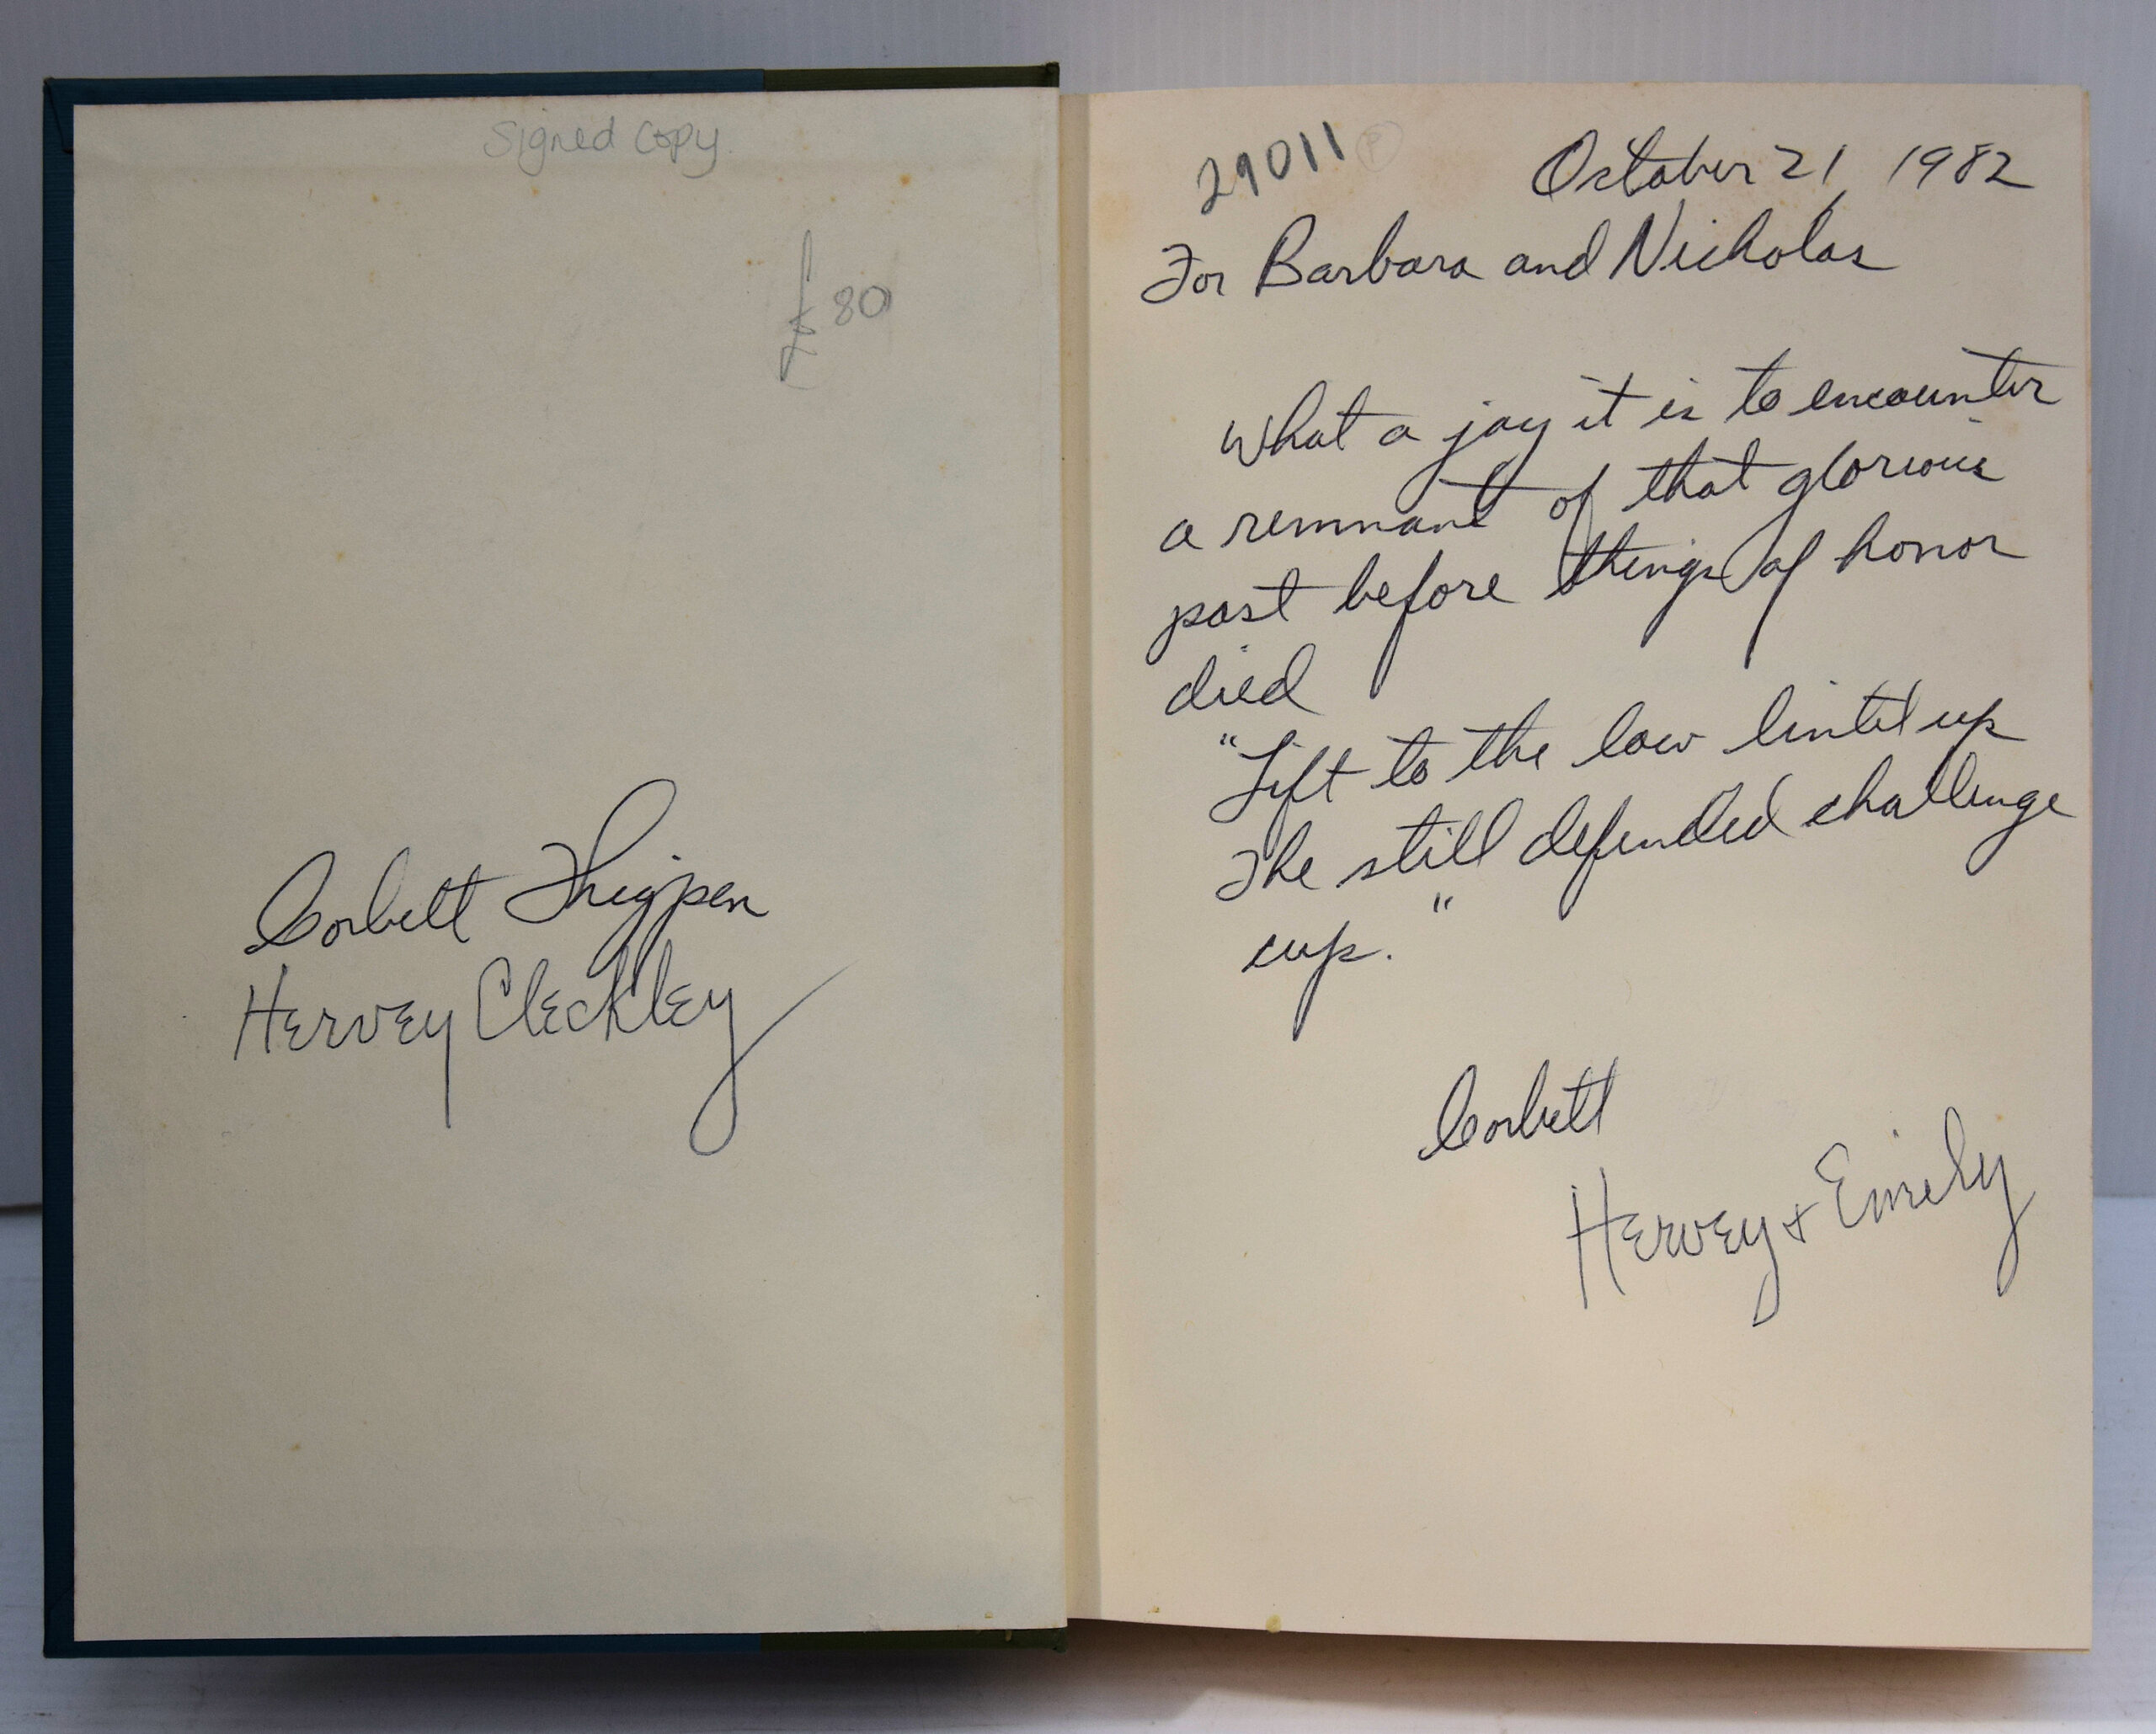 Signed Copy.
£80
Corbett Thigpen
Hervey Cleckley
29011
October 21, 1982
For Barbara and Nicholas
What a joy it is to encounter
a remnant of that glorious
past before things of honor
died
"Lift to the low lintel up
The still defended challenge
cup."
Corbett
Hervey + Emily